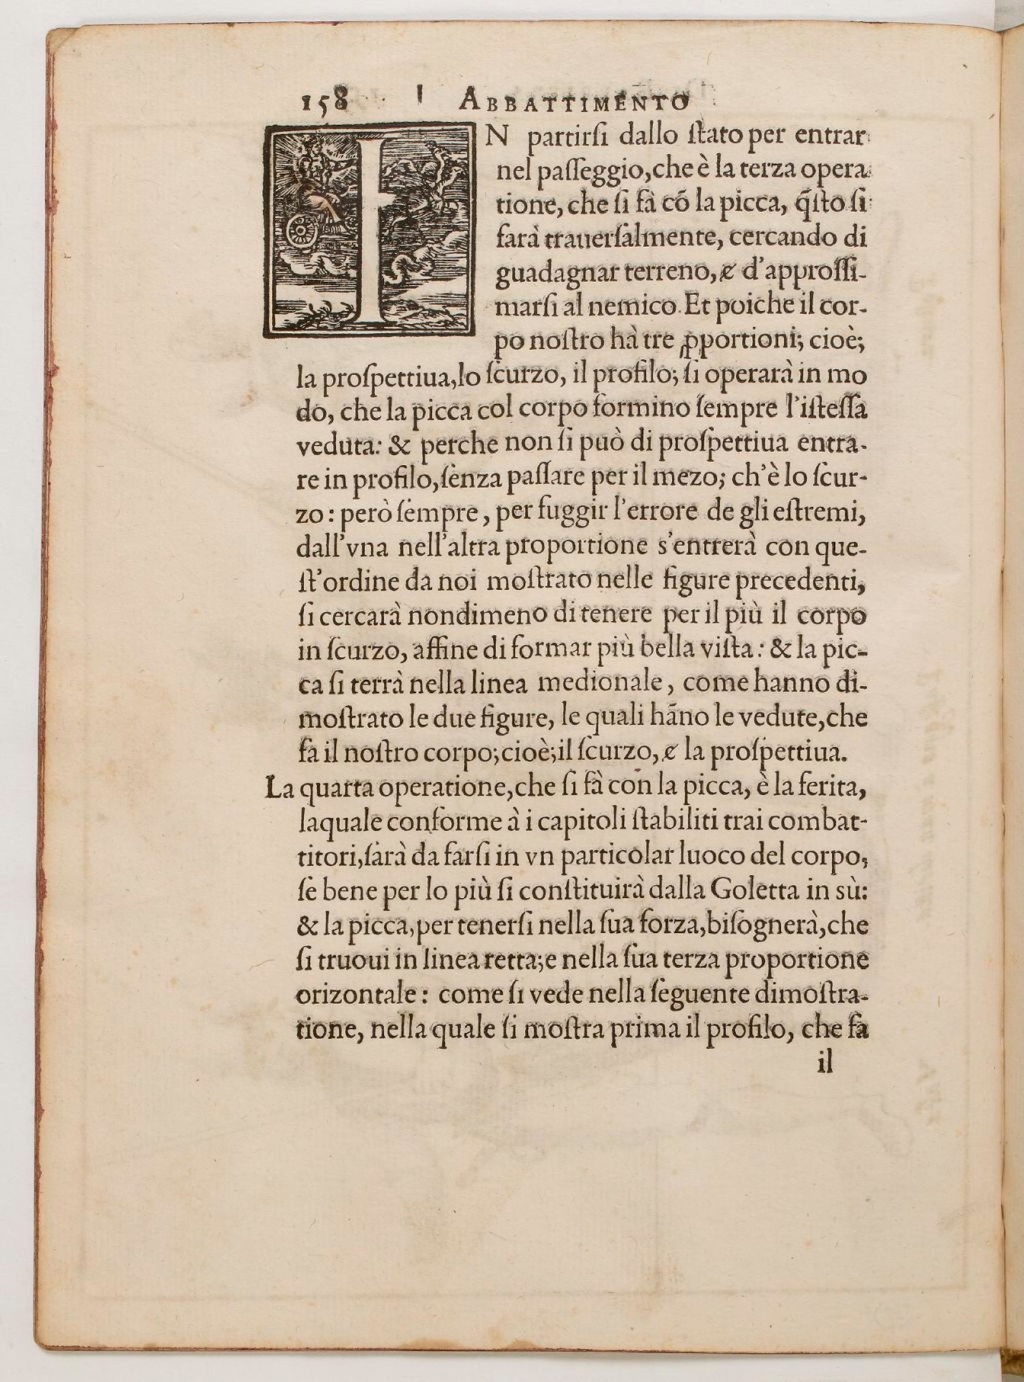 158 ABBATTIMENTO
IN partirſi dallo ſtato per entrar
nel paſſeggio, che è la terza opera
tione, che ſi fà cõ la picca, q̃ſto ſi
farà trauerſalmente, cercando di
guadagnar terreno, & d'approſſi-
marſi al nemico. Et poiche il cor-
po noſtro hà tre ꝓportioni; cioè;
la proſpettiua, lo ſcurzo, il profilo; ſi operarà in mo
do, che la picca col corpo formino ſempre l'iſteſſa
veduta: & perche non ſi può di proſpettiua entra-
re in profilo, ſenza paſſare per il mezo; ch'è lo ſcur-
zo: però ſempre, per fuggir l'errore de gli eſtremi,
dall'vna nell'altra proportione s'entrerà con que-
ſt'ordine da noi moſtrato nelle figure precedenti,
ſi cercarà nondimeno di tenere per il più il corpo
in ſcurzo, affine di formar più bella viſta: & la pic-
ca ſi terrà nella linea medionale, come hanno di-
moſtrato le due figure, le quali hãno le vedute, che
fà il noſtro corpo; cioè; il ſcurzo, & la proſpettiua.
La quarta operatione, che ſi fà con la picca, è la ferita,
laquale conforme à i capitoli ſtabiliti trai combat-
titori, ſarà da farſi in vn particolar luoco del corpo,
ſe bene per lo più ſi conſtituirà dalla Goletta in sù:
& la picca, per tenerſi nella ſua forza, biſognerà, che
ſi truoui in linea retta; e nella ſua terza proportione
orizontale: come ſi vede nella ſeguente dimoſtra-
tione, nella quale ſi moſtra prima il profilo, che fà
il